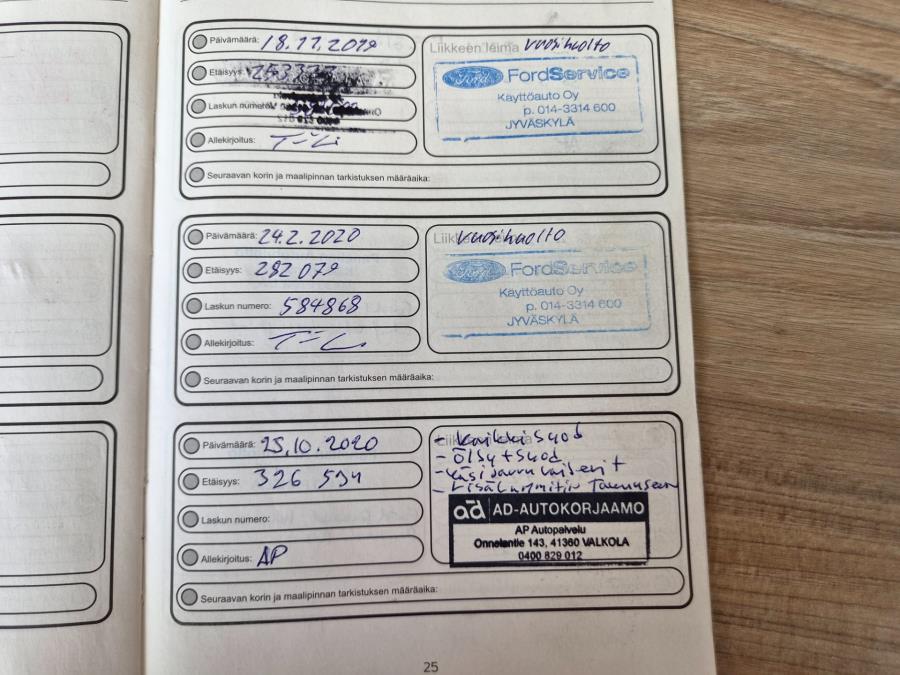 Päivämäärä: 18.11.2019
Liikkeen leima vuosihuolto
Etäisyys:
Ford FordService
Laskun numero:
Käyttöauto Oy
p. 014-3314 600
JYVÄSKYLÄ
Allekirjoitus:
Seuraavan korin ja maalipinnan tarkistuksen määräaika:
Päivämäärä: 24.2.2020
vuosihuolto
Etäisyys: 282 079
Ford FordService
Käyttöauto Oy
p. 014-3314 600
JYVÄSKYLÄ
Laskun numero: 584868
Allekirjoitus:
Seuraavan korin ja maalipinnan tarkistuksen määräaika:
Päivämäärä: 25.10.2020
- kaikki suod
- Öljy + suod
- Käsijarru vaijerit
- Lisälämmitin
Etäisyys: 326 594
Laskun numero:
ad AD-AUTOKORJAAMO
AP Autopalvelu
Onnelantie 143, 41360 VALKOLA
0400 829 012
Allekirjoitus: AP
Seuraavan korin ja maalipinnan tarkistuksen määräaika:
25